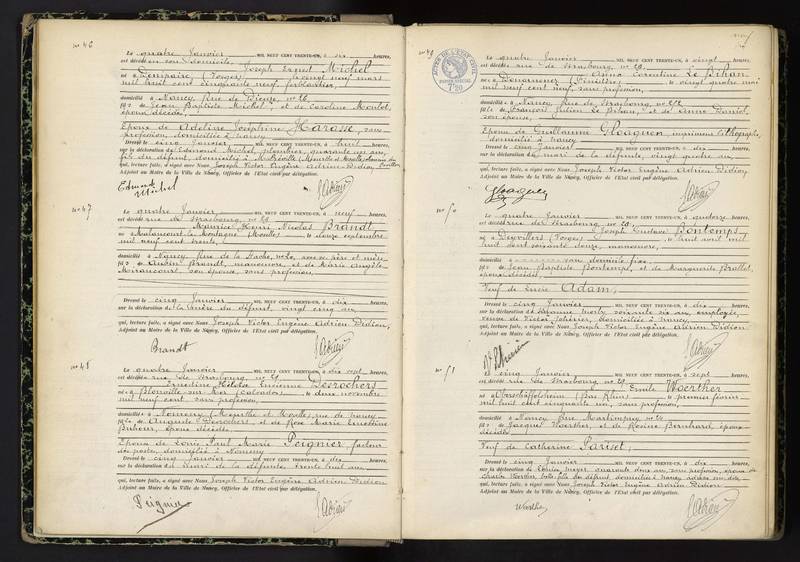 n° 46
Le quatre Janvier MIL NEUF CENT TRENTE-UN, à six heures,
est décédé en son domicile Joseph Ernest Michel
né à (Vosges) le vingt neuf mars
mil huit cent cinquante neuf,
domicilié à Nancy, Rue de Dieuze, n° 26,
fils de Jean Baptiste Michel, et de Caroline Montot,
époux décédés,
Epoux de Adeline Joséphine Harasse, sans
profession, domiciliée à Nancy
Dressé le cinq Janvier MIL NEUF CENT TRENTE-UN, à huit heures,
sur la déclaration de Edmond Michel, plombier, quarante un ans,
fils du défunt, domicilié à (Meurthe et Moselle)
qui, lecture faite, a signé avec Nous Joseph Victor Eugène Adrien Didion,
Adjoint au Maire de la Ville de Nancy, Officier de l'Etat civil par délégation.
Edmond
Michel
n° 47
Le quatre Janvier MIL NEUF CENT TRENTE-UN, à neuf heures,
est décédé rue de Strasbourg, n° 29
Maurice Henri Nicolas Brandt
né à Moulancourt la Montagne (Moselle) le douze septembre
mil neuf cent trente,
domicilié à Nancy, Rue de la Hache, n° 20, avec ses père et mère,
fils de Aubin Brandt, manoeuvre, et de Marie Angèle
Mirancourt, son épouse, sans profession,
Dressé le cinq Janvier MIL NEUF CENT TRENTE-UN, à dix heures,
sur la déclaration de la mère du défunt, vingt cinq ans,
qui, lecture faite, a signé avec Nous Joseph Victor Eugène Adrien Didion,
Adjoint au Maire de la Ville de Nancy, Officier de l'Etat civil par délégation.
Brandt
n° 48
Le quatre Janvier MIL NEUF CENT TRENTE-UN, à dix sept heures,
est décédée rue de Strasbourg, n° 29
Ernestine Lucienne Desrochers
née à Blonville sur Mer (Calvados) le douze novembre
mil neuf cent, sans profession,
domiciliée à Nomeny (Meurthe et Moselle), rue de Nancy
fille de Auguste Desrochers, et de Rose Marie Ernestine
époux décédés,
Epouse de Louis Paul Marie Peignier, facteur
des postes, domicilié à Nomeny
Dressé le cinq Janvier MIL NEUF CENT TRENTE-UN, à dix heures,
sur la déclaration du mari de la défunte, trente huit ans,
qui, lecture faite, a signé avec Nous Joseph Victor Eugène Adrien Didion
Adjoint au Maire de la Ville de Nancy, Officier de l'Etat civil par délégation.
Peignier
n° 49
Le quatre Janvier MIL NEUF CENT TRENTE-UN, à vingt heures,
est décédée rue de Strasbourg, n° 29,
Anna Corentine Le Bihan
née à Douarnenez (Finistère) le vingt quatre mai
mil neuf cent neuf, sans profession,
domiciliée à Nancy, Rue de Strasbourg, n°
fille de François Julien Le Bihan, et de Anne Daniel,
son épouse,
Epouse de Guillaume Gloaguen, imprimeur lithographe,
domicilié à Nancy
Dressé le cinq Janvier MIL NEUF CENT TRENTE-UN, à dix heures,
sur la déclaration du mari de la défunte, vingt quatre ans,
qui, lecture faite, a signé avec Nous Joseph Victor Eugène Adrien Didion,
Adjoint au Maire de la Ville de Nancy, Officier de l'Etat civil par délégation.
Gloaguen
n° 50
Le quatre Janvier MIL NEUF CENT TRENTE-UN, à quatorze heures,
est décédé rue de Strasbourg, n° 29,
Joseph Gustave Bontemps,
né à Deyvillers (Vosges) le huit avril mil
huit cent soixante douze, manoeuvre,
domicilié à sans domicile fixe,
fils de Jean Baptiste Bontemps, et de Marguerite Brallet,
époux décédés,
Veuf de Lucie Adam,
Dressé le cinq Janvier MIL NEUF CENT TRENTE-UN, à dix heures,
sur la déclaration de soixante six ans, employée,
veuve de Victor domiciliée à Nancy,
qui, lecture faite, a signé avec Nous Joseph Victor Eugène Adrien Didion
Adjoint au Maire de la Ville de Nancy, Officier de l'Etat civil par délégation.
n° 51
Le cinq Janvier MIL NEUF CENT TRENTE-UN, à sept heures,
est décédé rue de Strasbourg, n° 29
Emile Woerther
né à Oberschaeffolsheim (Bas Rhin) le premier février
mil huit cent cinquante un, sans profession,
domicilié à Nancy, Rue Martimprey, n°
fils de Jacques Woerther, et de Rosine Bernhard, époux
décédés,
Veuf de Catherine Pariset,
Dressé le cinq Janvier MIL NEUF CENT TRENTE-UN, à dix heures,
sur la déclaration de quarante deux ans, sans profession, épouse de
fille du défunt, domiciliée à Nancy,
qui, lecture faite, a signé avec Nous Joseph Victor Eugène Adrien Didion
Adjoint au Maire de la Ville de Nancy, Officier de l'Etat civil par délégation.